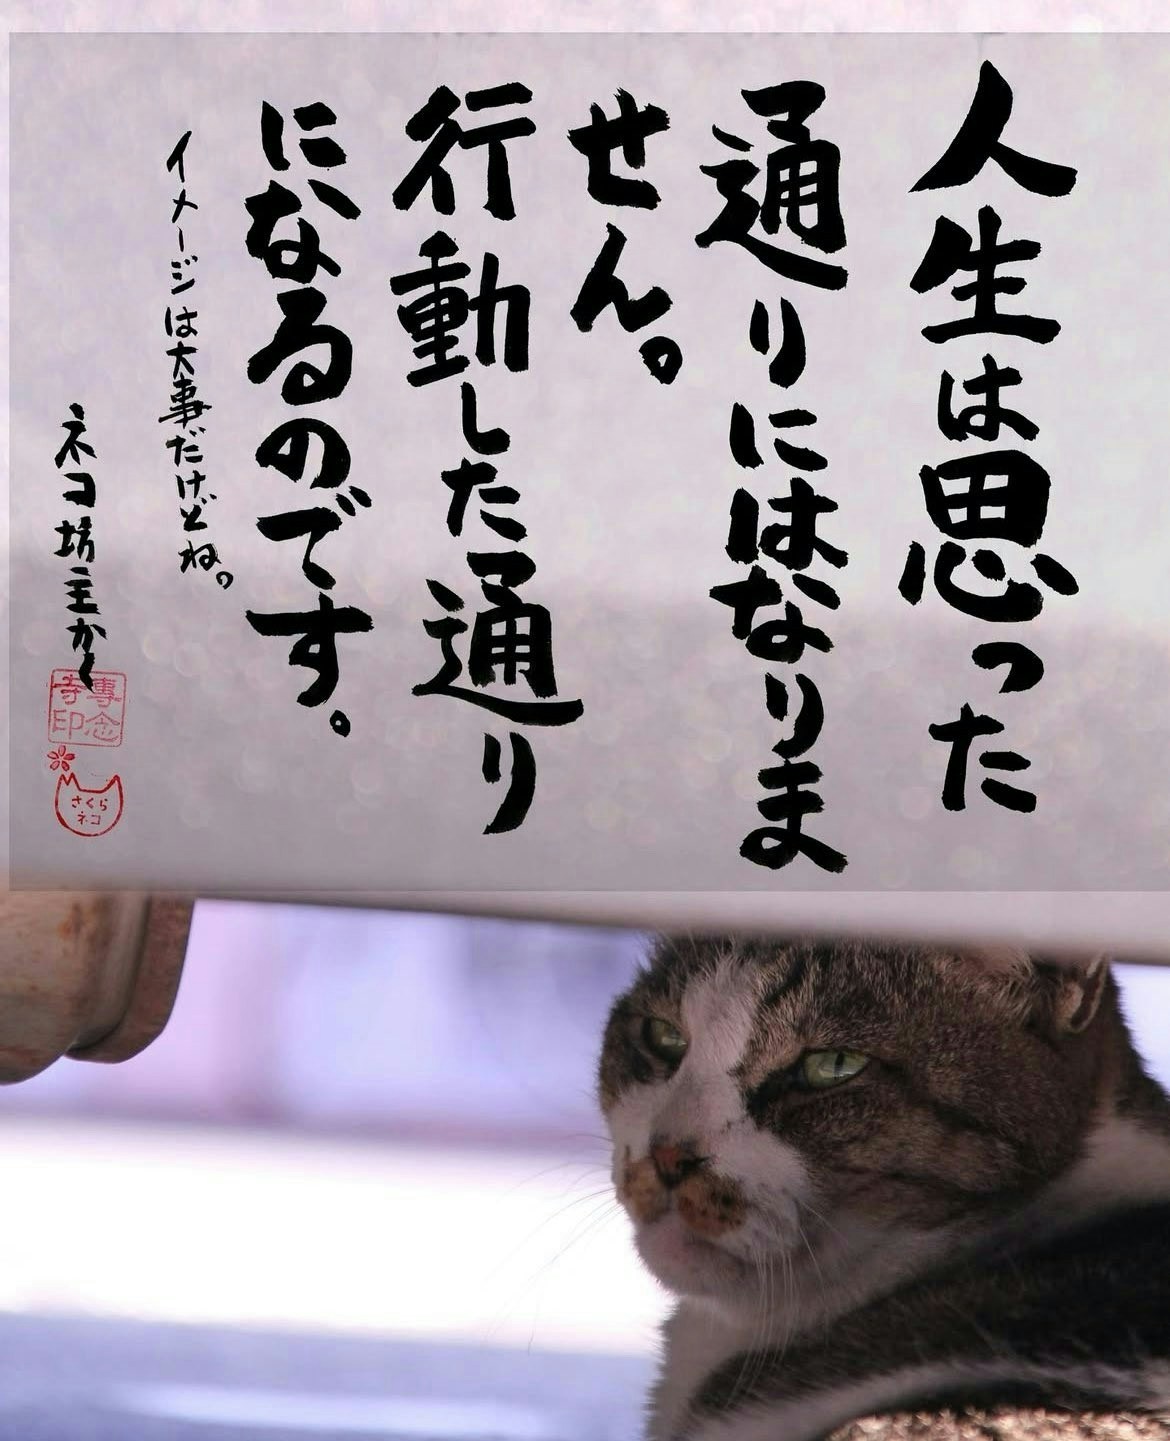 人生は思った
通りにはなりま
せん。
行動した通り
になるのです。
イメージは大事だけどね。
ネコ坊主かく
專念
寺印
さくら
ネコ